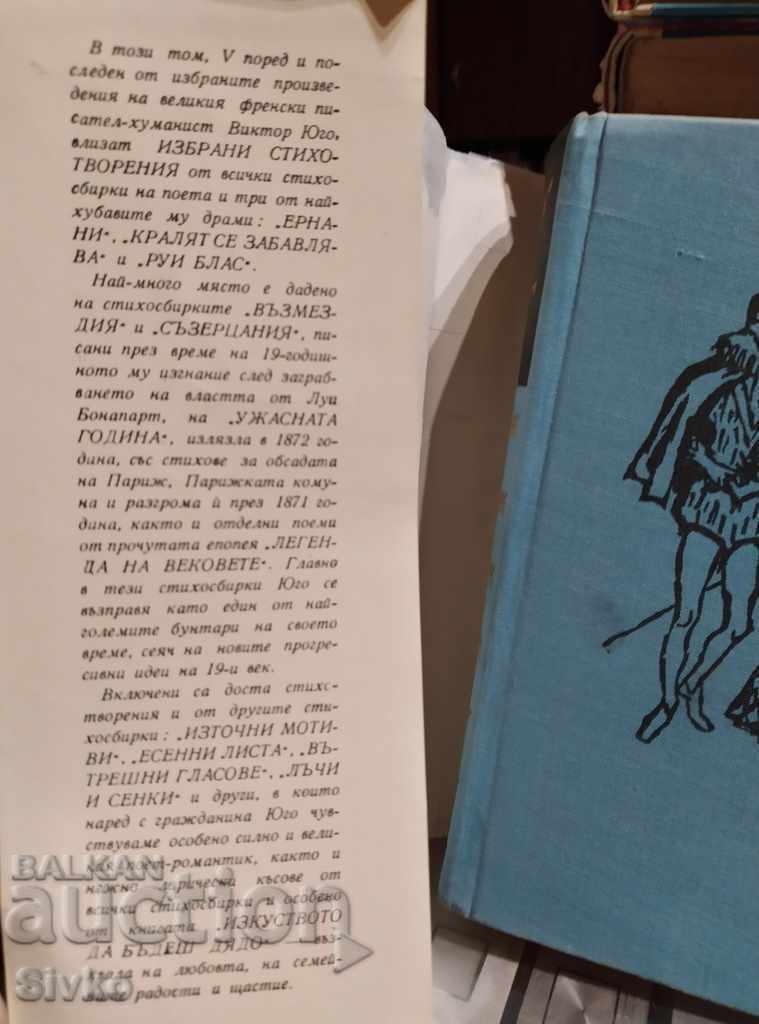 В този том, V поред и по-
следен от избраните произве-
дения на великия френски пи-
сател-хуманист Виктор Юго,
влизат ИЗБРАНИ СТИХО-
ТВОРЕНИЯ от всички стихо-
сбирки на поета и три от най-
хубавите му драми: „ЕРНА-
НИ“, „КРАЛЯТ СЕ ЗАБАВЛЯ-
ВА“ и „РУИ БЛАС“.
Най-много място е дадено
на стихосбирките „ВЪЗМЕЗ-
ДИЯ“ и „СЪЗЕРЦАНИЯ“, пи-
сани през време на 19-годиш-
ното му изгнание след заграб-
ването на властта от Луи
Бонапарт, на „УЖАСНАТА
ГОДИНА“, излязла в 1872 го-
дина, със стихове за обсадата
на Париж, Парижката кому-
на и разгрома ѝ през 1871 го-
дина, както и отделни поеми
от прочутата епопея „ЛЕГЕН-
ДА НА ВЕКОВЕТЕ“. Главно
в тези стихосбирки Юго се
възправя като един от най-
големите бунтари на своето
време, сеяч на новите прогре-
сивни идеи на 19-и век.
Включени са доста стихо-
творения и от другите сти-
хосбирки: „ИЗТОЧНИ МОТИ-
ВИ“, „ЕСЕННИ ЛИСТА“, „ВЪ-
ТРЕШНИ ГЛАСОВЕ“, „ЛЪЧИ
И СЕНКИ“ и други, в които
наред с гражданина Юго чув-
ствуваме особено силно и вели-
кия поет-романтик, както и
нежно лирически късове от
всички стихосбирки и особено
от книгата „ИЗКУСТВОТО
ДА БЪДЕШ ДЯДО“ въз-
хвала на любовта, на семей-
ните радости и щастие.
BALKAN
auction
Sivko